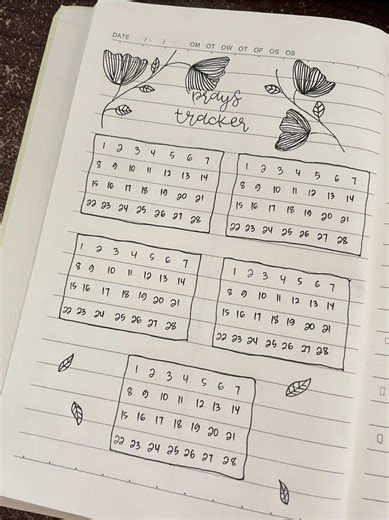 DATE / - / OM OT OW OT OF OS OS
prays
tracker
1 2 3 4 5 6 7
8 9 10 11 12 13 14
15 16 17 18 19 20 21
22 23 24 25 26 27 28
1 2 3 4 5 6 7
8 9 10 11 12 13 14
15 16 17 18 19 20 21
22 23 24 25 26 27 28
1 2 3 4 5 6 7
8 9 10 11 12 13 14
15 16 17 18 19 20 21
22 23 24 25 26 27 28
1 2 3 4 5 6 7
8 9 10 11 12 13 14
15 16 17 18 19 20 21
22 23 24 25 26 27 28
1 2 3 4 5 6 7
8 9 10 11 12 13 14
15 16 17 18 19 20 21
22 23 24 25 26 27 28